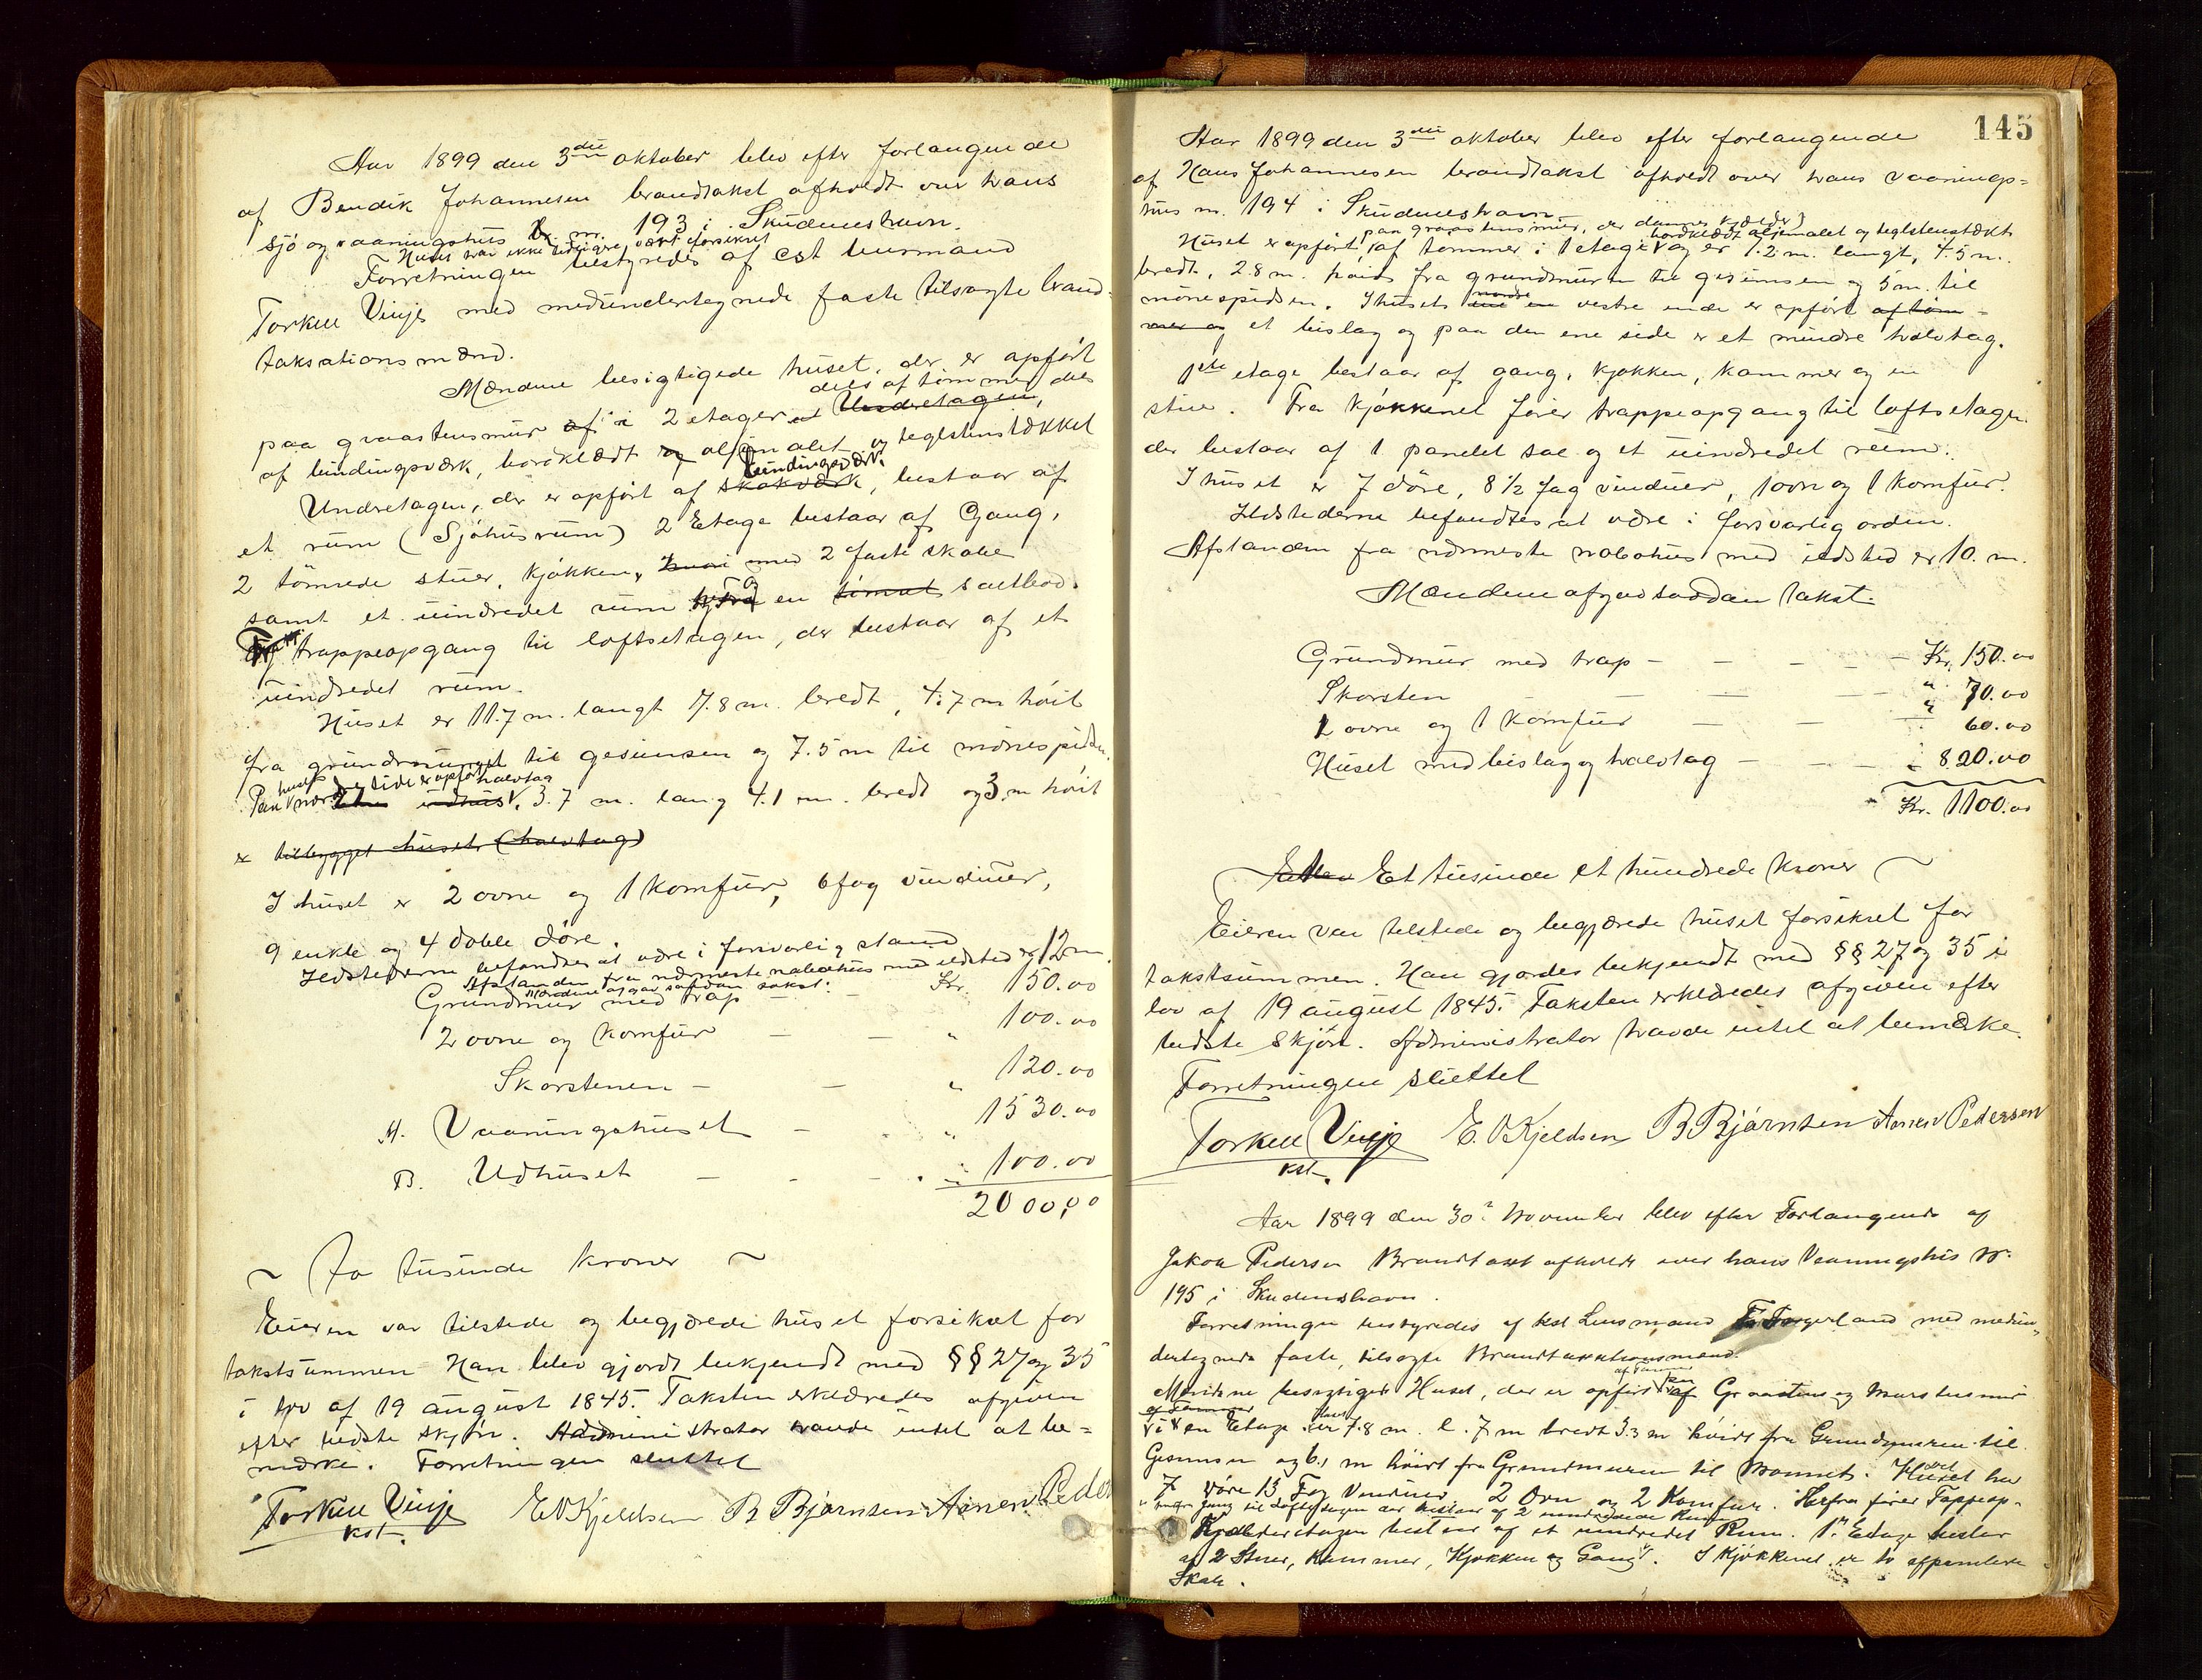 Aar 1899 den 3die oktober blev efter forlangende
af Bendik Johannesen brandtakst afholdt over hans
sjö og vaaningshus nr. 193 i Skudeneshavn.
Huset var ikke tidligere vært forsikret
Forretningen bestyredes af cst lensmand
Torkell Vinje med medundertegnede faste tilsagte brand-
taksationsmænd.
Mændene besigtigede huset, der er opført
dels af tömmer dels
paa graastensmur i 2 etager Underetagen,
af bindingsværk, bordklædt og oljemalet og teglstenstækket
bindingsværk
Underetagen, der er opført af skakværk, bestaar af
et rum (Sjöhusrum) 2 Etage bestaar af Gang,
2 tömrede stuer, kjökken, med 2 faste skabe
samt et uindredet rum og en tömret saltbod.
trappeopgang til loftsetagen, der bestaar af et
uindredet rum.
Huset er 11.7 m. langt 7.8 m. bredt, 4.7 m höit
fra grundmuren til gesimsen og 7.5 m til mönespidsen.
Paa husets nordre side er opført halvtag
udhus 3.7 m. lang 4.1 m. bredt og 3 m höit
er tilbygget huset (halvtag)
I huset er 2 ovne og 1 komfur, 6 fag vinduer,
9 enkle og 4 doble döre.
Ildstederne befandtes at være i forsvarlig stand
Afstanden fra nærmeste nabohus med ildsted er 12 m.
Mændene afgav saadan takst:
Grundmur med trap — Kr. 150.00
2 ovne og komfur — — " 100.00
Skorstenen — — " 120.00
A. Vaaningshuset — " 1530.00
B. Udhuset — - - " 100.00
2000,00
~ To tusinde kroner ~
Eieren var tilstede og begjærede huset forsikret for
takstsummen Han blev gjordt bekjendt med §§ 27 og 35
i lov af 19 august 1845. Taksten erklæredes afgiven
efter bedste skjön. Administrator havde intet at be=
mærke. Forretningen sluttet
Torkell Vinje E. O Kjeldsen B Bjørnsen Asner Peder
kst.
145
Aar 1899 den 3die oktober blev efter forlangende
af Hans Johannesen brandtakst afholdt over hans vaanings=
hus nr. 194 i Skudeneshavn.
paa graastensmur, der danner kjælder) bordklædt oljemalet og teglstenstækt
Huset er opført, af tømmer i 1 etage og er 7.2 m. langt, 4.5 m.
bredt, 2.8 m. höit fra grundmuren til gesimsen og 5 m. til
mönespidsen. I husets nordre vestre ende er opført af töm=
mer og et bislag og paa den ene side er et mindre halvtag.
1ste etage bestaar af gang, kjökken, kammer og en
stue. Fra kjökkenet förer trappeopgang til loftsetagen
der bestaar af 1 panelet sal og et uindredet rum.
I huset er 7 döre, 8 1/2 fag vinduer, 1 ovn og 1 komfur.
Ildstederne befandtes at være i forsvarlig orden.
Afstanden fra nærmeste nabohus med ildsted er 10. m.
Mændene afgav saadan takst.
Grundmur med trap - — — — Kr. 150.00
Skorsten — — — " 70.00
2 ovne og 1 komfur — — " 60.00
Huset med bislag og halvtag - — " 820.00
Kr. 1100.00
Et tusinde et hundrede kroner ~
Eieren var tilstede og begjærede huset forsikret for
takstsummen. Han gjordes bekjendt med §§ 27 og 35 i
lov af 19 august 1845. Taksten erklæredes afgiven efter
bedste skjön. Administrator havde intet at bemærke.
Forretningen sluttet
Torkell Vinje E. O Kjeldsen B Bjørnsen Asner Pedersen
kst.
Aar 1899 den 30. November blev efter Forlangende af
Jakob Pedersen Brandtaxt afholdt over hans Vaaningshus Nr.
195 i Skudeneshavn.
Forretningen bestyredes af kst Lensmand med medun=
dertegnede faste, tilsagte Brandtaxationsmænd.
Mændene besigtigede Huset, der er opført af Tømmer paa Graastens og Murstensmur
i en Etage. Huset er 7.8 m. l. 7 m bredt 3.3 m höidt fra Grundmuren til
Gesimsen og 6.1 m höidt fra Grundmuren til Mønnet. Huset har
7 Döre 13 Fag Vinduer 2 Ovn og 2 Komfur. Herfra fører Trappeop-
gang til Loftsetagen der bestaar af 2 uindredede Rum
Kjælderetagen bestaar af et uindredet Rum. 1ste Etage bestaar
af 2 Stuer, Kammer, Kjøkken og Gang. I Kjøkkenet er to afpanelede
Skabe.